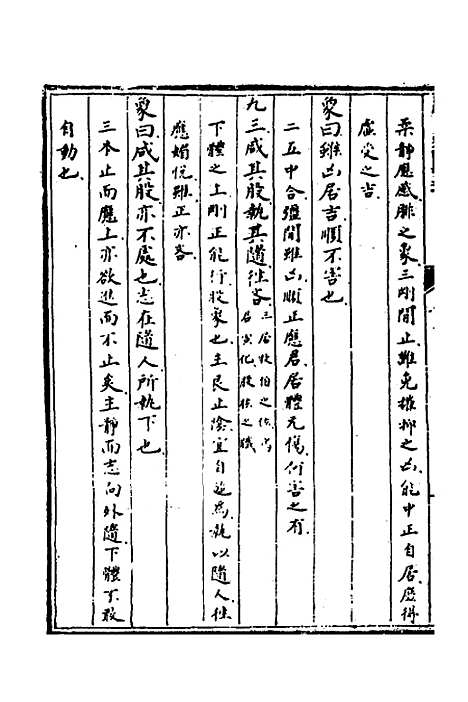 柔靜應感腓之象三剛間止難免摧抑之凶能中正自居應得
虛受之吉
象曰雖凶居吉順不害也
二五中合纏間雖凶順正應君居禮无傷何害之有
九三咸其股執其隨往吝三居牧伯之位當居宣化股肱之職
下體之上剛正能行股象也主艮止陰宜自造為執以隨人往
應媚悅雖正亦吝
象曰咸其股亦不處也志在隨人所執下也
三本止而應上亦欲進而不止矣主靜而志向外隨下體不敢
自動也